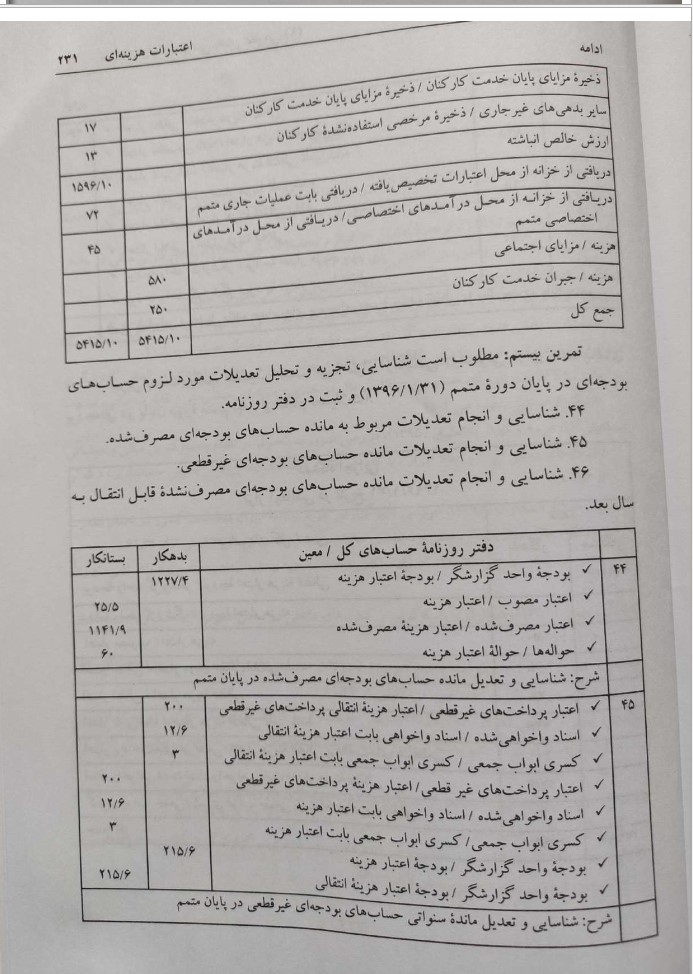 ادامه
اعتبارات هزینه‌ای ۲۳۱
ذخیرهٔ مزایای پایان خدمت کارکنان / ذخیرهٔ مزایای پایان خدمت کارکنان
سایر بدهی‌های غیرجاری / ذخیرهٔ مرخصی استفاده‌نشدهٔ کارکنان ۱۷
ارزش خالص انباشته ۱۳
دریافتی از خزانه از محل اعتبارات تخصیص‌یافته / دریافتی بابت عملیات جاری متمم ۱۵۹۶/۱۰
دریافتی از خزانه از محل درآمدهای اختصاصی/ دریافتی از محل درآمدهای ۷۲
اختصاصی متمم
هزینه / مزایای اجتماعی ۴۵
هزینه / جبران خدمت کارکنان ۵۸۰
۲۵۰
جمع کل ۵۴۱۵/۱۰ ۵۴۱۵/۱۰
تمرین بیستم: مطلوب است شناسایی، تجزیه و تحلیل تعدیلات مورد لزوم حساب‌های
بودجه‌ای در پایان دورهٔ متمم (۱۳۹۶/۱/۳۱) و ثبت در دفتر روزنامه.
۴۴. شناسایی و انجام تعدیلات مربوط به مانده حساب‌های بودجه‌ای مصرف‌شده.
۴۵. شناسایی و انجام تعدیلات مانده حساب‌های بودجه‌ای غیرقطعی.
۴۶. شناسایی و انجام تعدیلات مانده حساب‌های بودجه‌ای مصرف‌نشدهٔ قابل انتقال به
سال بعد.
دفتر روزنامهٔ حساب‌های کل / معین بدهکار بستانکار
۴۴ ✓ بودجهٔ واحد گزارشگر / بودجهٔ اعتبار هزینه ۱۲۲۷/۴
✓ اعتبار مصوب / اعتبار هزینه ۲۵/۵
✓ اعتبار مصرف‌شده / اعتبار هزینهٔ مصرف‌شده ۱۱۴۱/۹
✓ حواله‌ها / حوالهٔ اعتبار هزینه ۶۰
شرح: شناسایی و تعدیل مانده حساب‌های بودجه‌ای مصرف‌شده در پایان متمم
۴۵ ✓ اعتبار پرداخت‌های غیرقطعی / اعتبار هزینهٔ انتقالی پرداخت‌های غیرقطعی ۲۰۰
✓ اسناد واخواهی‌شده / اسناد واخواهی بابت اعتبار هزینهٔ انتقالی ۱۲/۶
✓ کسری ابواب جمعی / کسری ابواب جمعی بابت اعتبار هزینهٔ انتقالی ۳
✓ اعتبار پرداخت‌های غیر قطعی/ اعتبار هزینهٔ پرداخت‌های غیرقطعی ۲۰۰
✓ اسناد واخواهی‌شده / اسناد واخواهی بابت اعتبار هزینه ۱۲/۶
✓ کسری ابواب جمعی/ کسری ابواب جمعی بابت اعتبار هزینه ۳
✓ بودجهٔ واحد گزارشگر / بودجهٔ اعتبار هزینه ۲۱۵/۶
✓ بودجهٔ واحد گزارشگر / بودجهٔ اعتبار هزینهٔ انتقالی ۲۱۵/۶
شرح: شناسایی و تعدیل ماندهٔ سنواتی حساب‌های بودجه‌ای غیرقطعی در پایان متمم